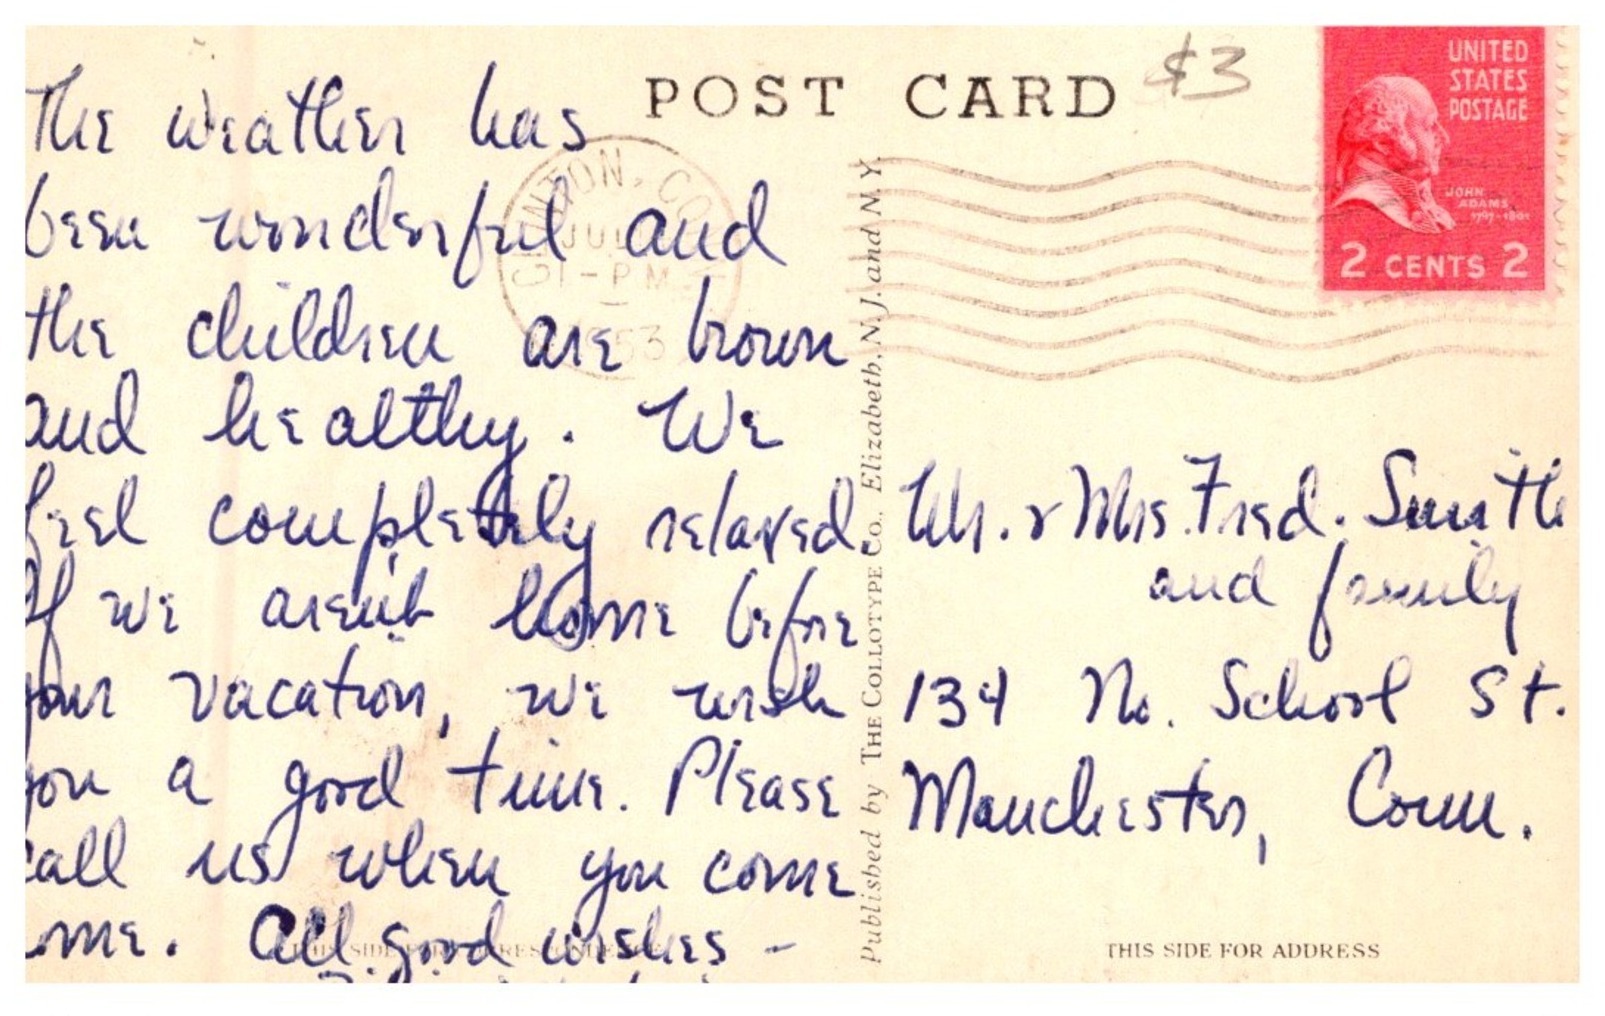 POST CARD $3
UNITED
STATES
POSTAGE
JOHN
ADAMS
1797-1801
2 CENTS 2
CLINTON, CONN
JUL
1-PM
1953
The weather has
been wonderful and
the children are brown
and healthy. We
feel completely relaxed.
If we aren't home before
your vacation, we wish
you a good time. Please
call us when you come
ome. All good wishes -
Published by THE COLLOTYPE Co., Elizabeth, N. J. and N. Y.
Mr. & Mrs. Fred. Smith
and family
134 No. School St.
Manchester, Conn.
THIS SIDE FOR CORRESPONDENCE
THIS SIDE FOR ADDRESS